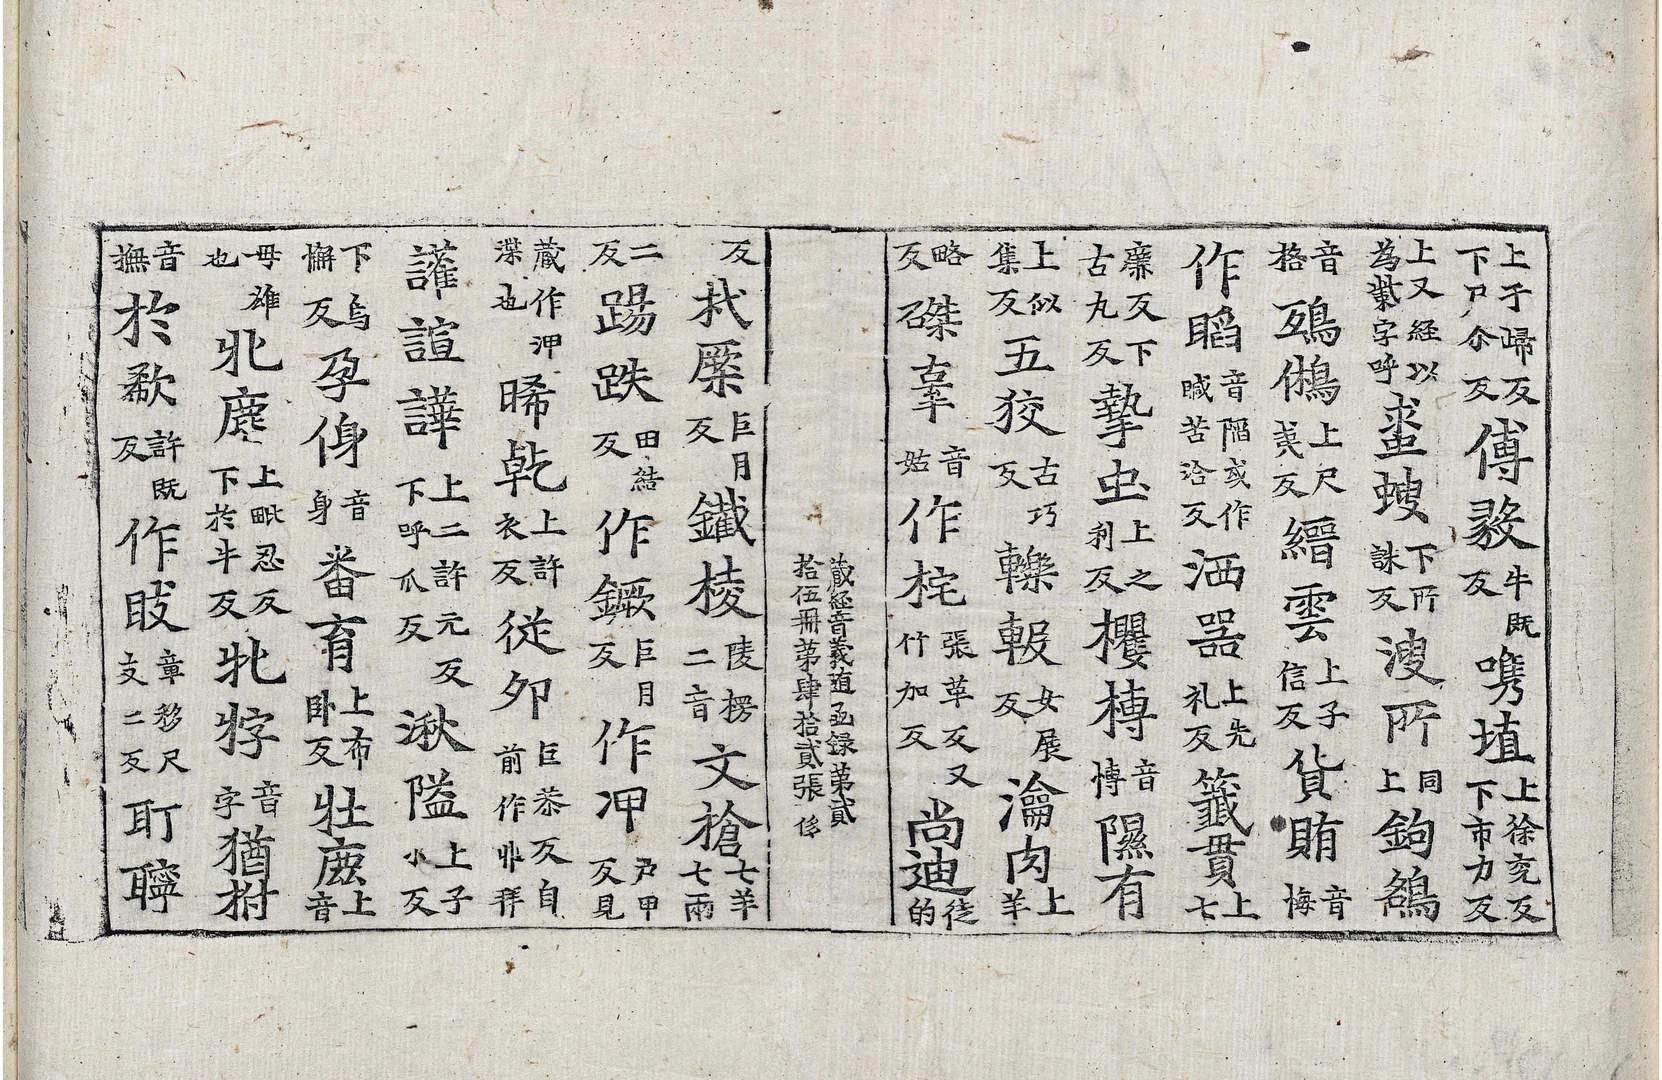 上于歸反下尸尒反傅毅牛既反嘰埴上徐兖反下市力反
上又經以為䗥字呼蚉螋下所誅反溲所同上鉤鵅
音格鵶鵂上尺夷反縉雲上子信反貨賄音悔
作䐄音陷或作䁍苦洽反洒器上先礼反籤貫上七
廉反下古丸反摯虫上之利反欔榑音博隰有
上似集反五狡古巧反轢輾女展反瀹肉上羊
略反磔辜音姑作㡯張革反又竹加反尚迪徒的
藏經音義随函録第貳拾伍冊第肆拾貳張 係
反杙橜巨月反鐵棱陵楞二音文槍七羊七兩
二反踼跌田結反作鐝巨月反作冄尸甲反見
藏作渫也晞乾上許衣反従卭巨恭反自前作非拜
讙諠譁上二許元反下呼瓜反湫隘上子小反
下烏懈反孕身音身畨育上布卧反牡麀上音
毋雄也牝麀上毗忍反下於牛反牝牸音字猶拊
音撫於欷許既反作䀢章移尺支二反耵聹